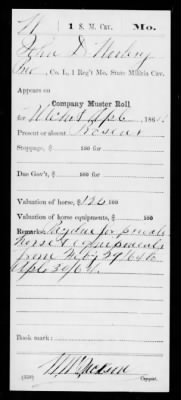 N | 1 S. M. Cav. | Mo.
John D.
Co. L, 1 Reg't Mo. State Militia Cav.
Appears on
Company Muster Roll
for 186
Present or absent Present
Stoppage, $ 100 for
Due Gov't, $ 100 for
Valuation of horse, $ 120 100
Valuation of horse equipments, $ 100
Remarks: Pay due for private
horse & equipments
from 29/64 to
Sept 30/64.
Book mark:
(359) Copyist.